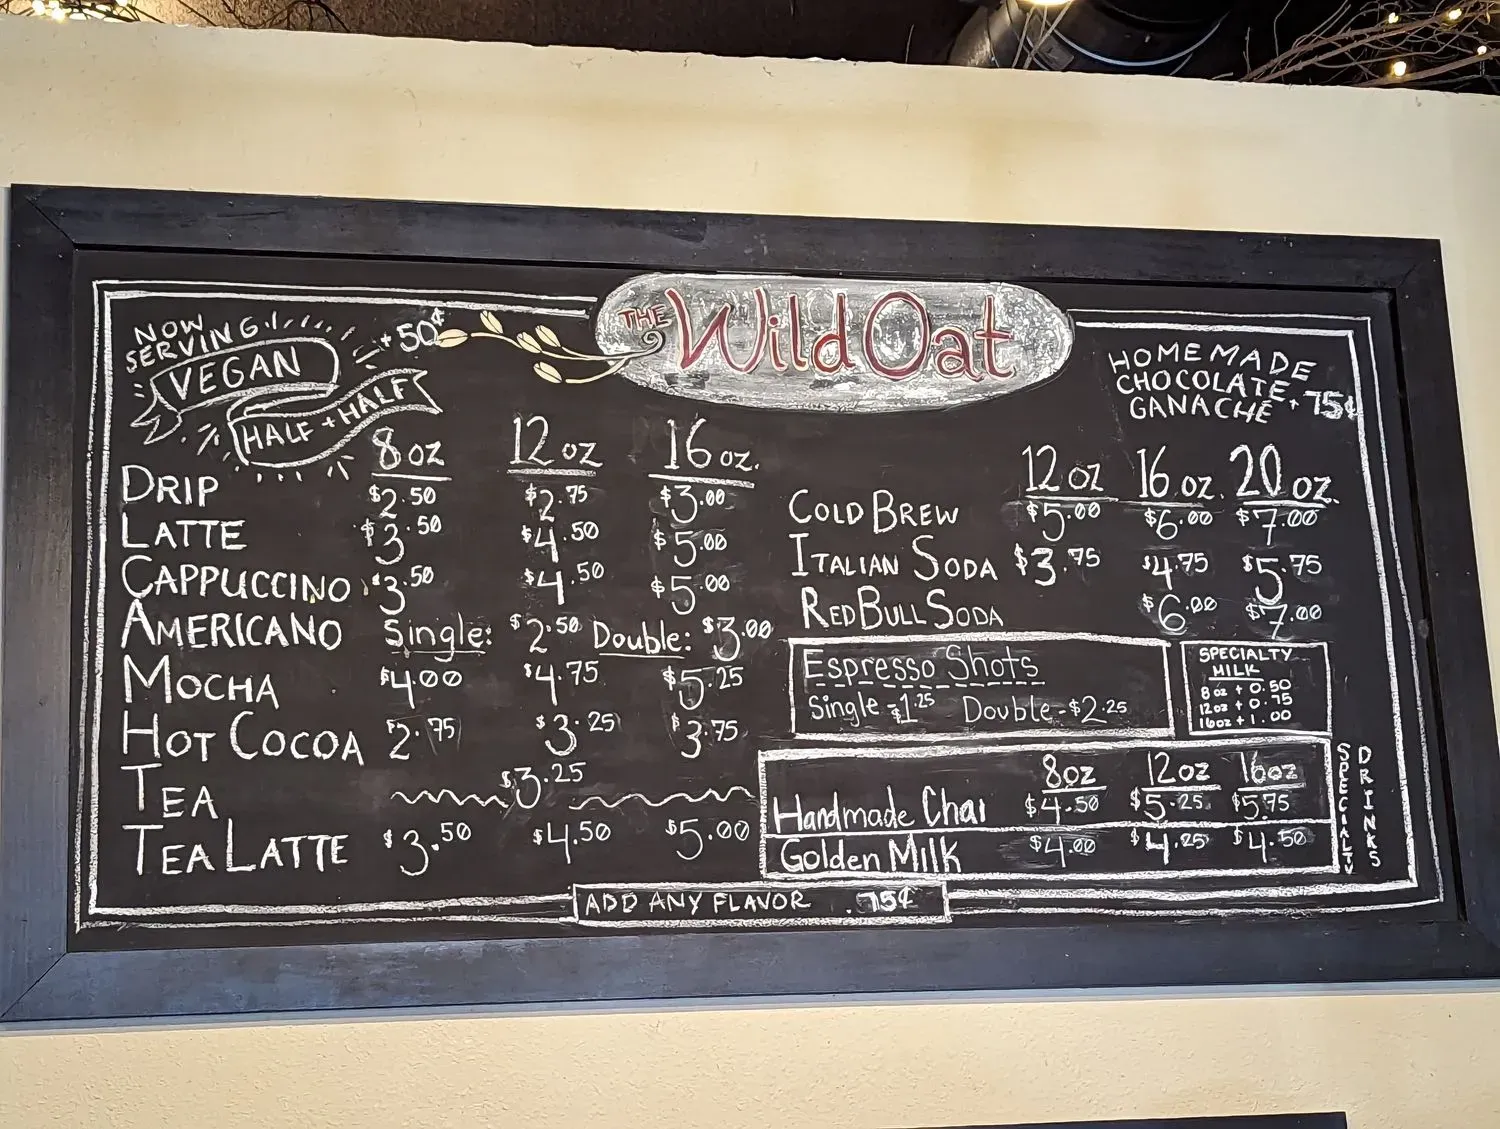 THE Wild Oat
NOW
SERVING
VEGAN
HALF + HALF
+ 50¢
HOMEMADE
CHOCOLATE
GANACHE + 75¢
8 oz 12 oz 16 oz.
DRIP $2.50 $2.75 $3.00
LATTE $3.50 $4.50 $5.00
CAPPUCCINO $3.50 $4.50 $5.00
AMERICANO Single: $2.50 Double: $3.00
MOCHA $4.00 $4.75 $5.25
HOT COCOA $2.75 $3.25 $3.75
TEA $3.25
TEA LATTE $3.50 $4.50 $5.00
12 oz 16 oz. 20 oz.
COLD BREW $5.00 $6.00 $7.00
ITALIAN SODA $3.75 $4.75 $5.75
RED BULL SODA $6.00 $7.00
Espresso Shots
Single - $1.25 Double - $2.25
SPECIALTY
MILK
8oz + 0.50
12oz + 0.75
16oz + 1.00
8oz 12oz 16oz
Handmade Chai $4.50 $5.25 $5.75
Golden Milk $4.00 $4.25 $4.50
SPECIALTY
DRINKS
ADD ANY FLAVOR .75¢